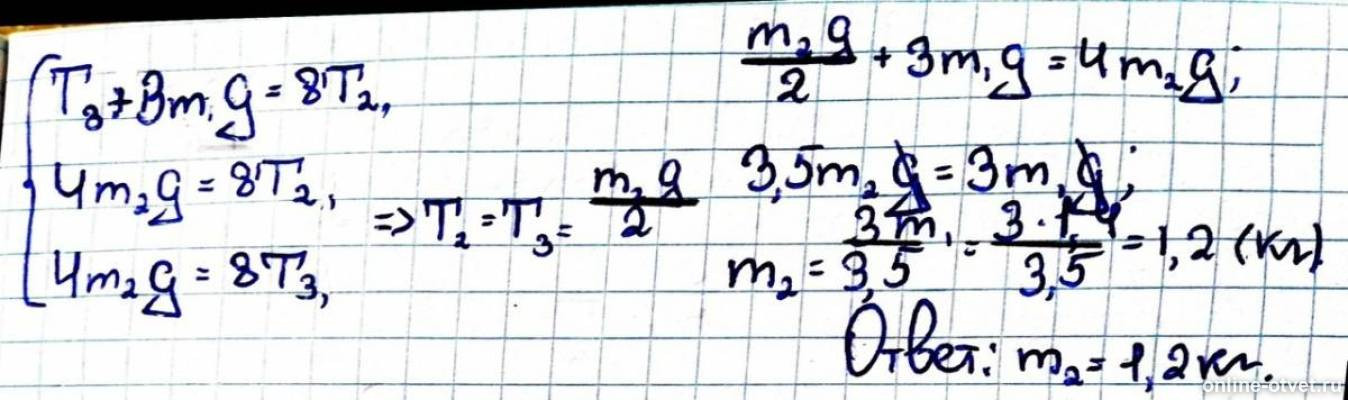 T₃ + 3m₁g = 8T₂,
4m₂g = 8T₂,
4m₂g = 8T₃,
=> T₂ = T₃ = m₂g/2
m₂g/2 + 3m₁g = 4m₂g;
3,5m₂g = 3m₁g;
m₂ = 3m₁/3,5 = 3·1,4/3,5 = 1,2 (кг)
Ответ: m₂ = 1,2 кг.
online-otvet.ru